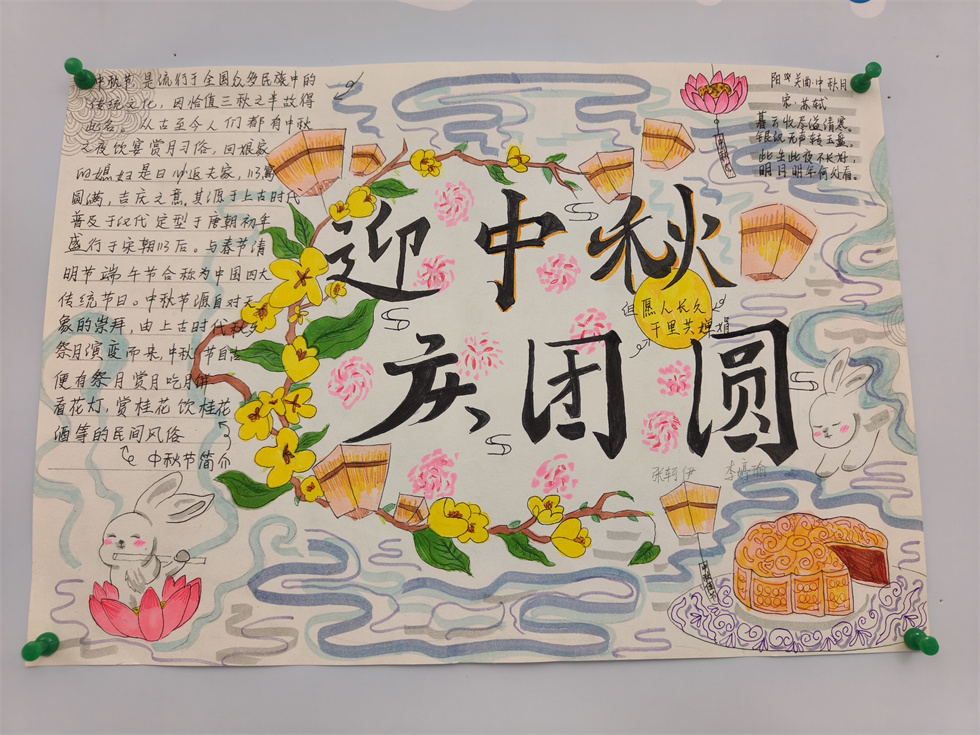 中秋节 是流行于全国众多民族中的
传统文化，因恰值三秋之半故得
此名。从古至今人们都有中秋
之夜饮宴赏月习俗，回娘家
的媳妇是日必返夫家，以寓
圆满，吉庆之意，其源于上古时代
普及于汉代 定型于唐朝初年
盛行于宋朝以后。与春节清
明节 端午节合称为中国四大
传统节日。中秋节源自对天
象的崇拜，由上古时代秋夕
祭月演变而来，中秋节自古
便有祭月赏月吃月饼
看花灯，赏桂花饮桂花
酒等的民间风俗
中秋节简介
迎中秋
但愿人长久
千里共婵娟
庆团圆
张轲伊 李婷瑜
阳关曲·中秋月
宋·苏轼
暮云收尽溢清寒。
银汉无声转玉盘。
此生此夜不长好，
明月明年何处看。